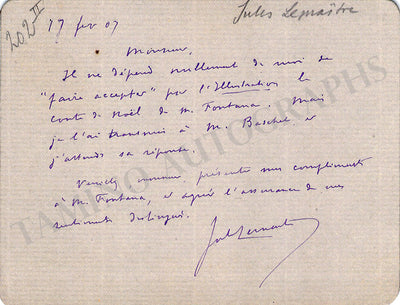 202 II
Jules Lemaître
17 fev 07
Monsieur,
Il ne dépend nullement de moi de
"faire accepter" par l'Illustration le
conte de Noël de M. Fontana. Mais
je l'ai transmis à M. Baschet et
j'attends sa réponse.
Veuillez, monsieur, présenter mes compliments
à M. Fontana, et agréer l'assurance de mes
sentiments distingués.
Jules Lemaître
TAMINO AUTOGRAPHS